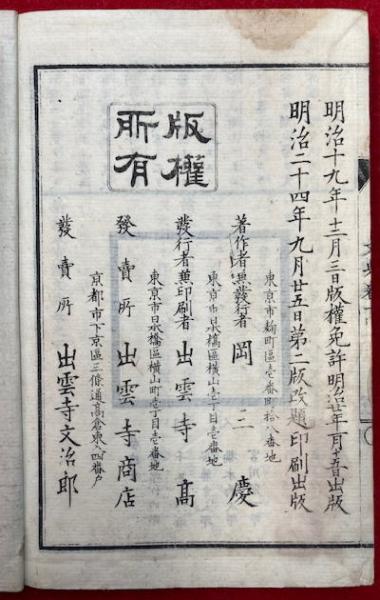 明治十九年十二月三日版權免許明治廿年月十五日出版
明治二十四年九月廿五日第二版改題印刷出版
版權所有
東京市麹町區壱番町拾八番地
著作者兼發行者 岡 三慶
東京市日本橋區横山町壱丁目壱番地
發行者兼印刷者 出雲寺 高
東京市日本橋區横山町壱丁目壱番地
發賣所 出雲寺商店
京都市下京區三條通高倉東入四番戸
發賣所 出雲寺文治郎